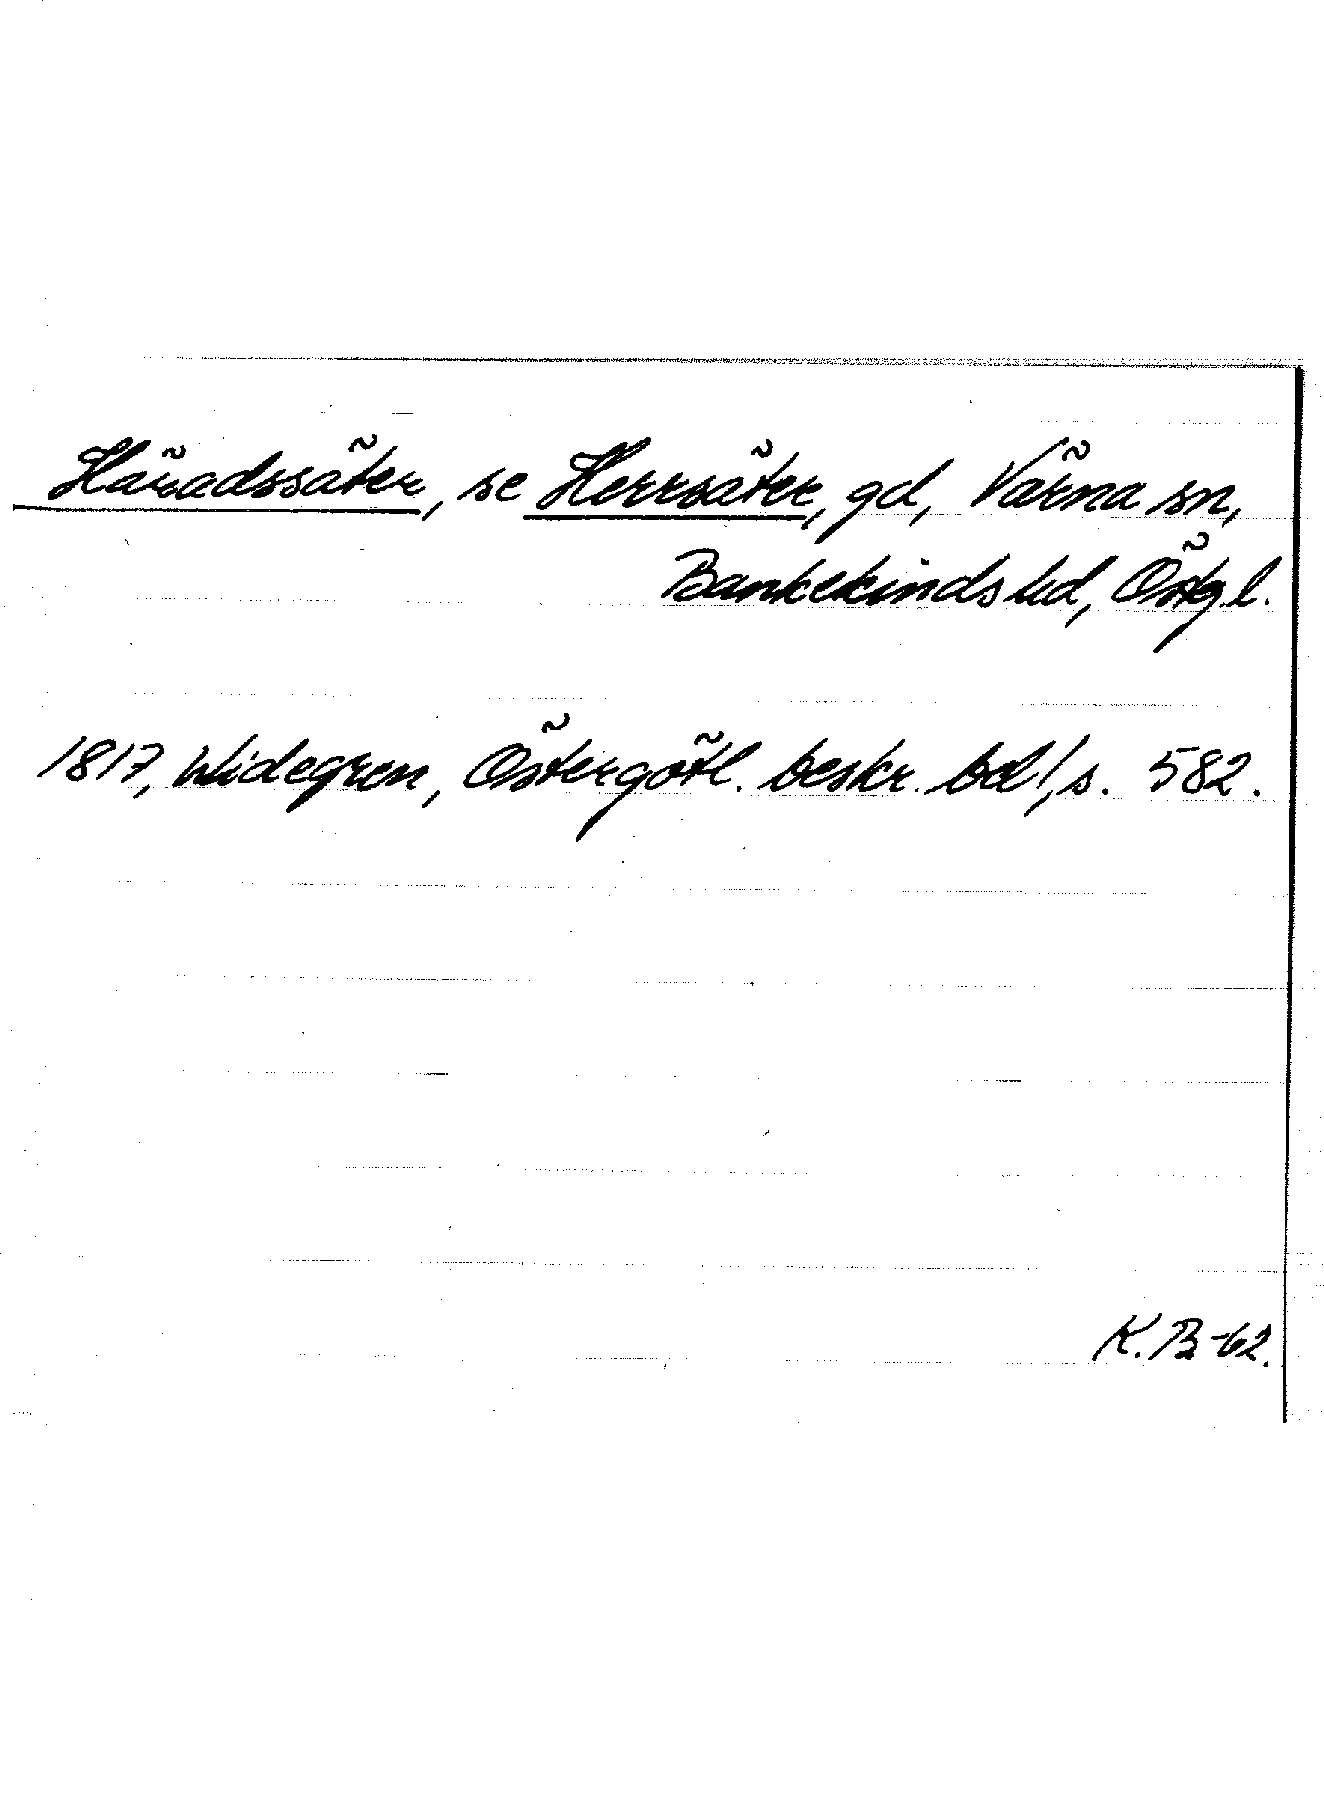 Häradssäter, se Herrsäter, gd, Värna sn,
Bankekinds hd, Östg.l.
1817, Widegren, Östergötl. beskr. bd 1, s. 582.
K.B-62.